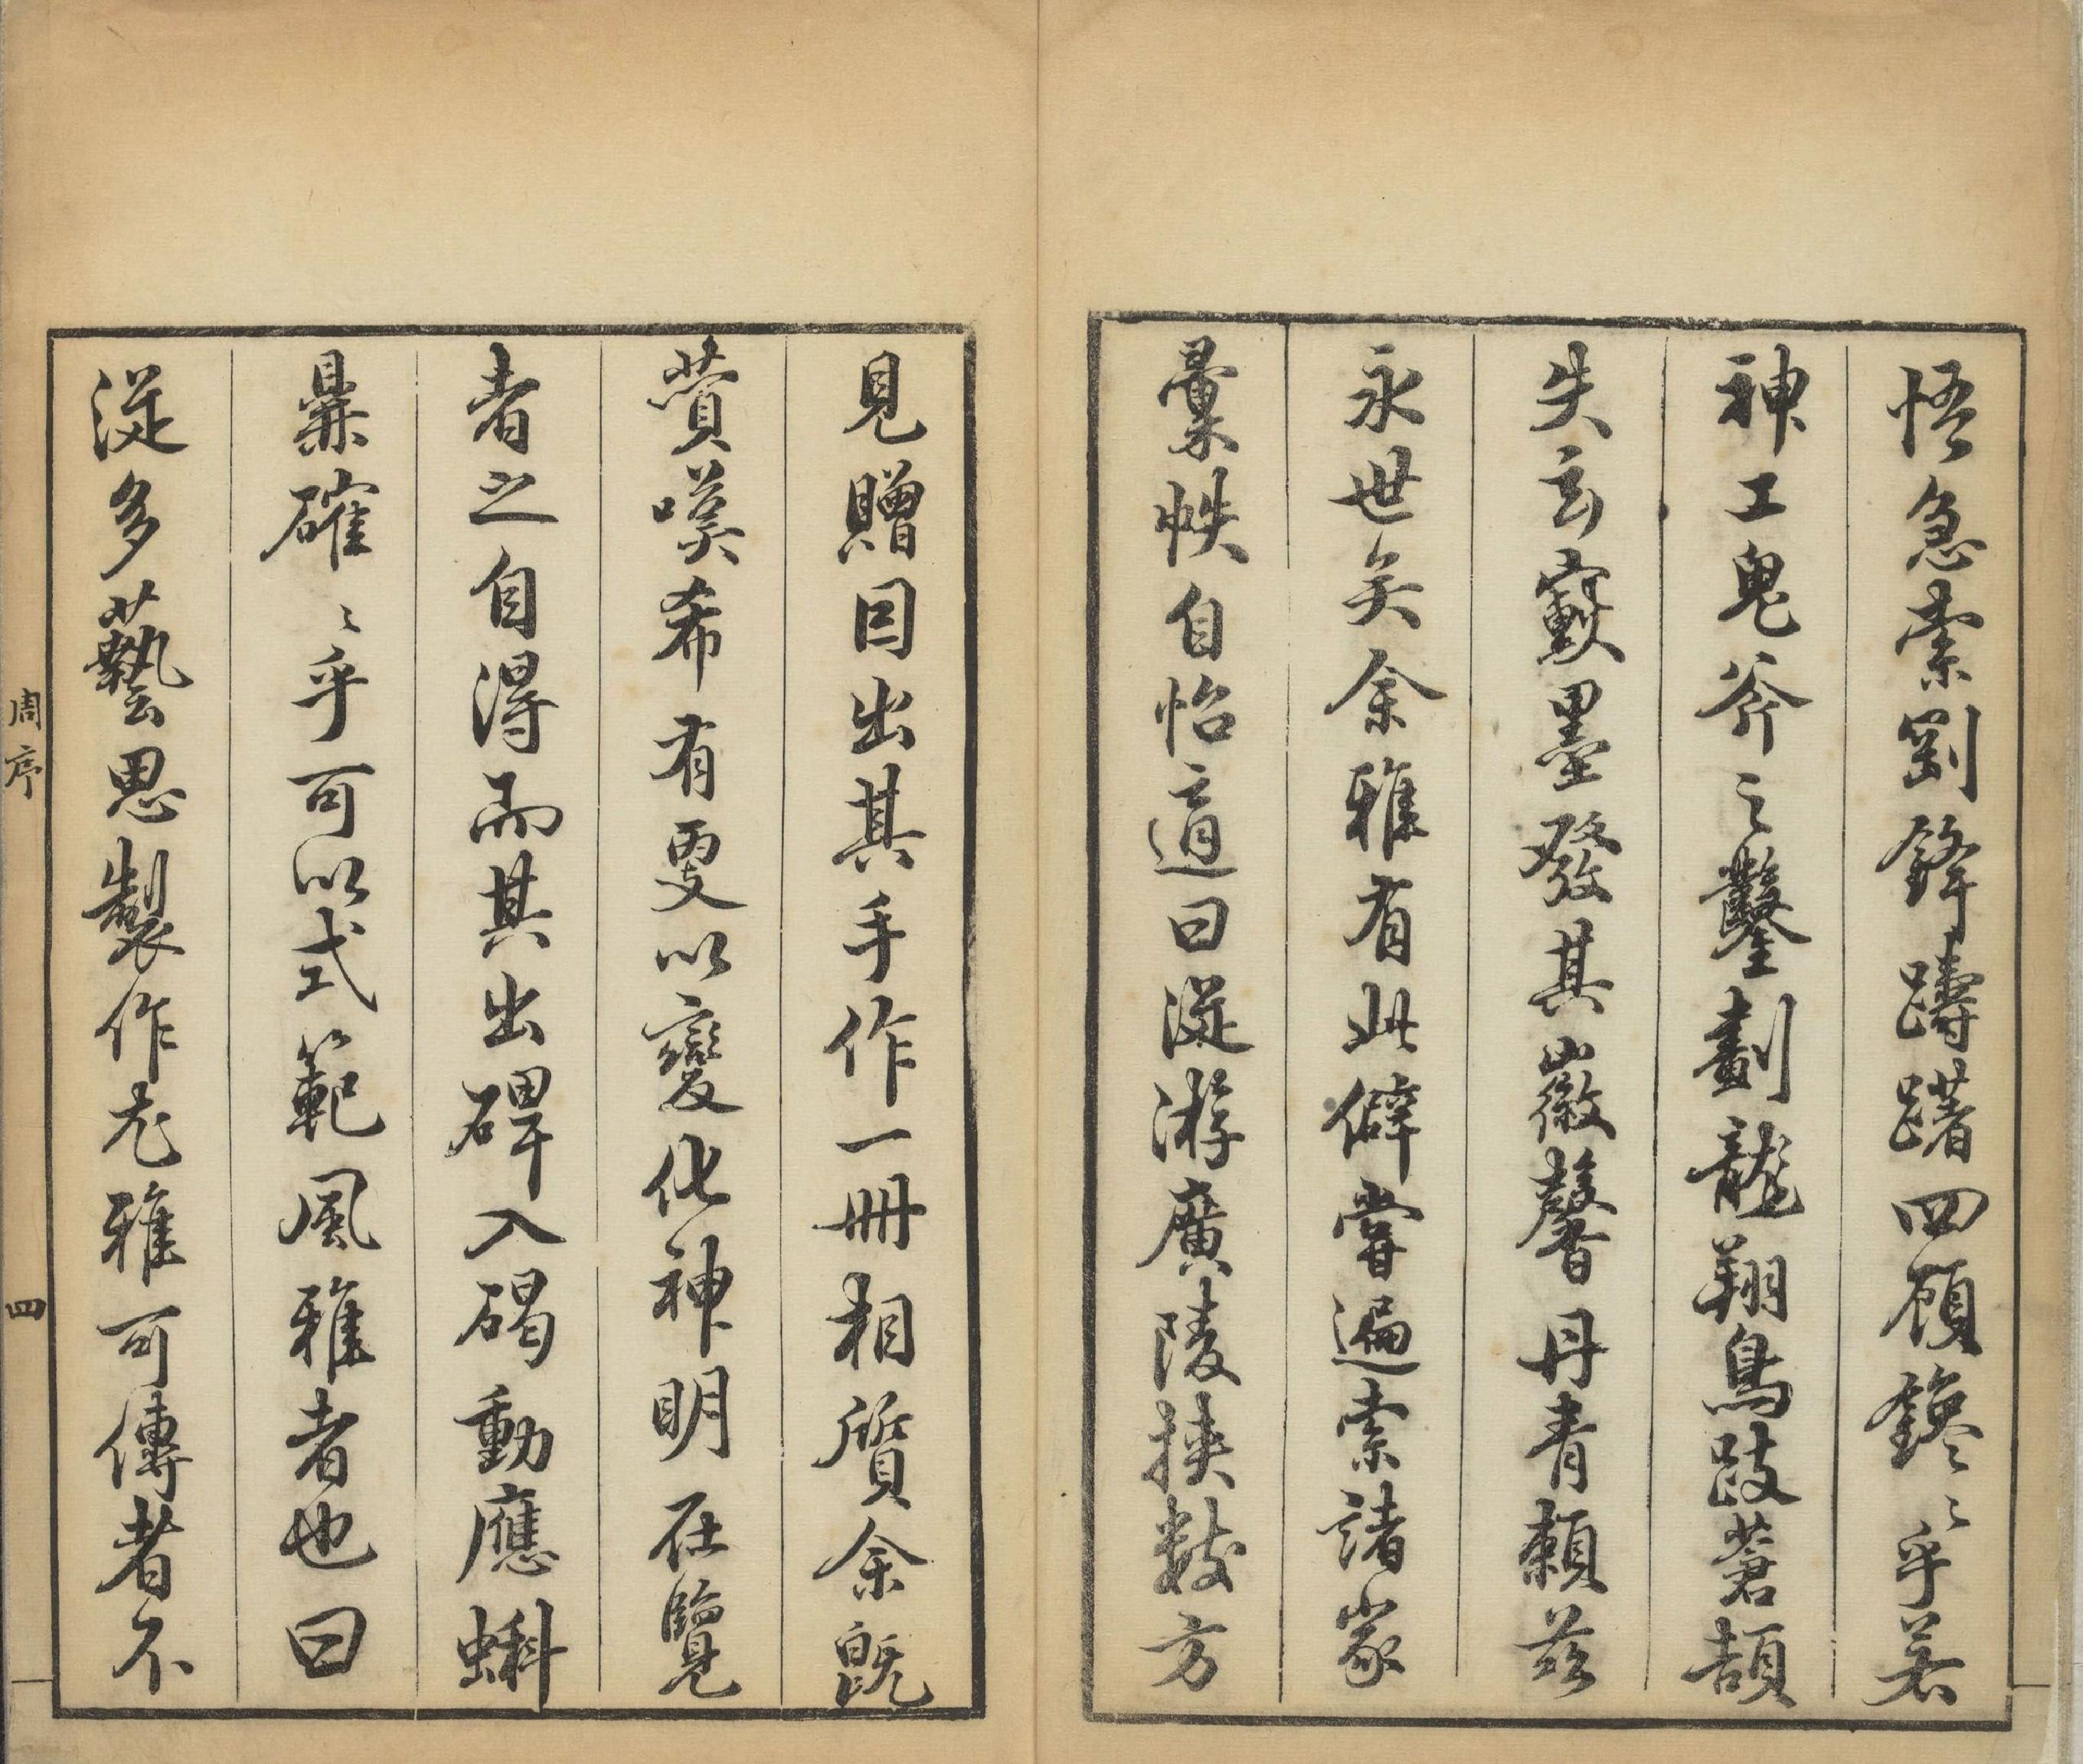 悟急索劉鋒躊躇四顧鑱〻乎若
神工鬼斧之鑿劃龍翔鳥跂蒼頡
失玄竅墨發其徽馨丹青賴茲
永世矣余雅有此僻嘗遍索諸家
彙帙自怡適曰從游廣陵挾数方
見贈因出其手作一冊相質余既
賛嘆希有更以變化神明在覽
者之自得而其出碑入碣動應蝌
鼎確〻乎可以式範風雅者也曰
從多藝思製作尤雅可傳者不
周序
四